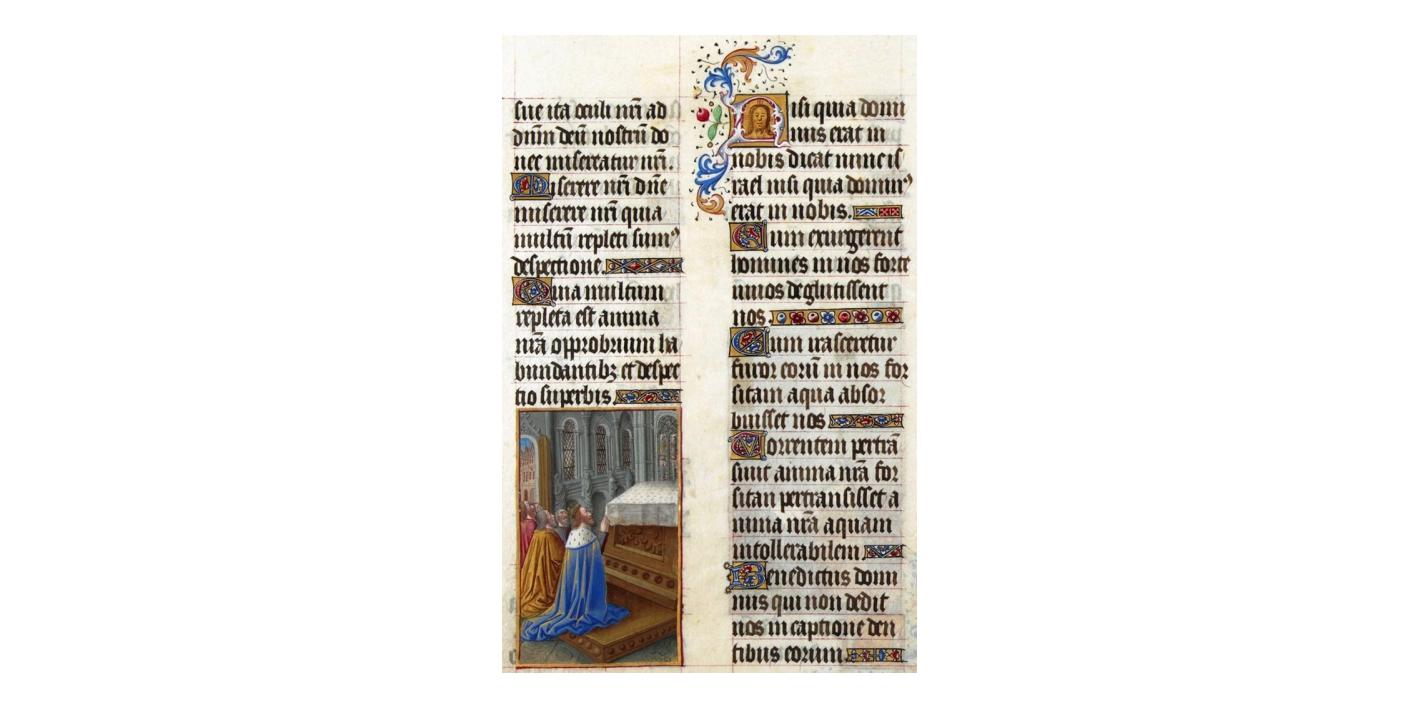 sue ita oculi nr̄i ad
dn̄m deū nostrū do
nec misereatur nr̄i.
Miserere nr̄i dn̄e
miserere nr̄i quia
multū repleti sumꝰ
despectione.
Quia multum
repleta est anima
nr̄a opprobrium ha
bundantibꝫ et despec
tio superbis
Nisi quia domi
nus erat in
nobis dicat nunc is
rael nisi quia dominꝰ
erat in nobis.
Cum exurgerent
homines in nos forte
uiuos deglutissent
nos.
Cum irasceretur
furor eorū in nos for
sitam aqua absor
buisset nos
Torrentem pertrā
siuit anima nr̄a for
sitan pertransisset a
nima nr̄a aquam
intollerabilem
Benedictus domi
nus qui non dedit
nos in captione den
tibus eorum